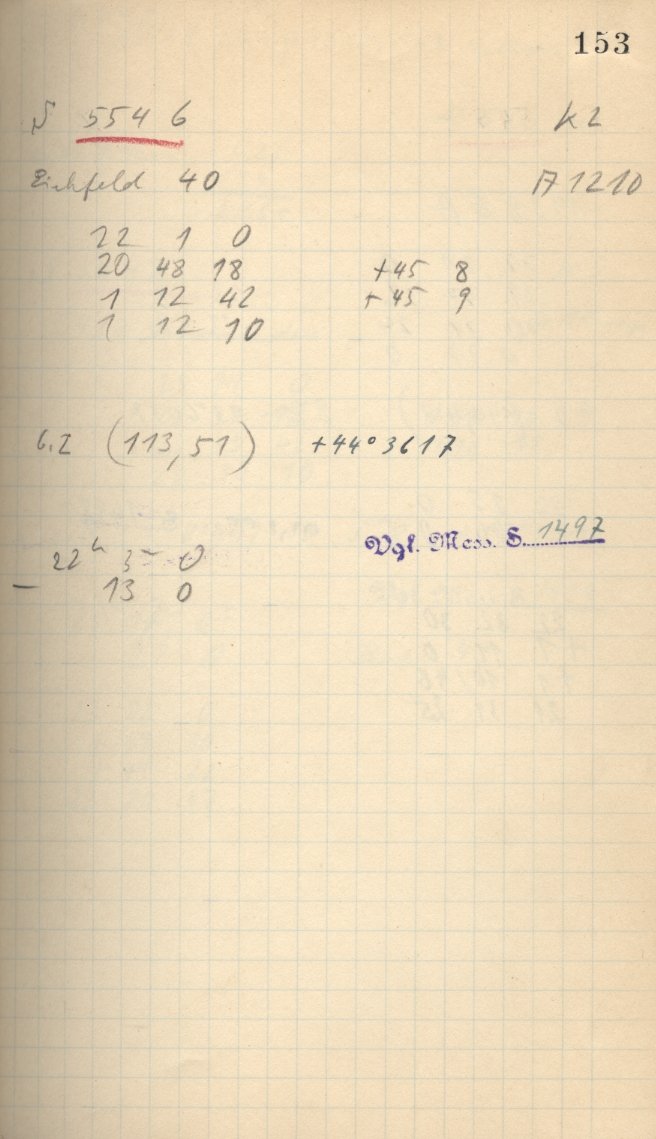 153
S 5546 K2
Eichfeld 40 A 1210
22 1 0
20 48 18 +45 8
1 12 42 +45 9
1 12 10
(113,51) +44° 36 17
Vgl. Mess. S. 1497
22h 3 0
– 13 0